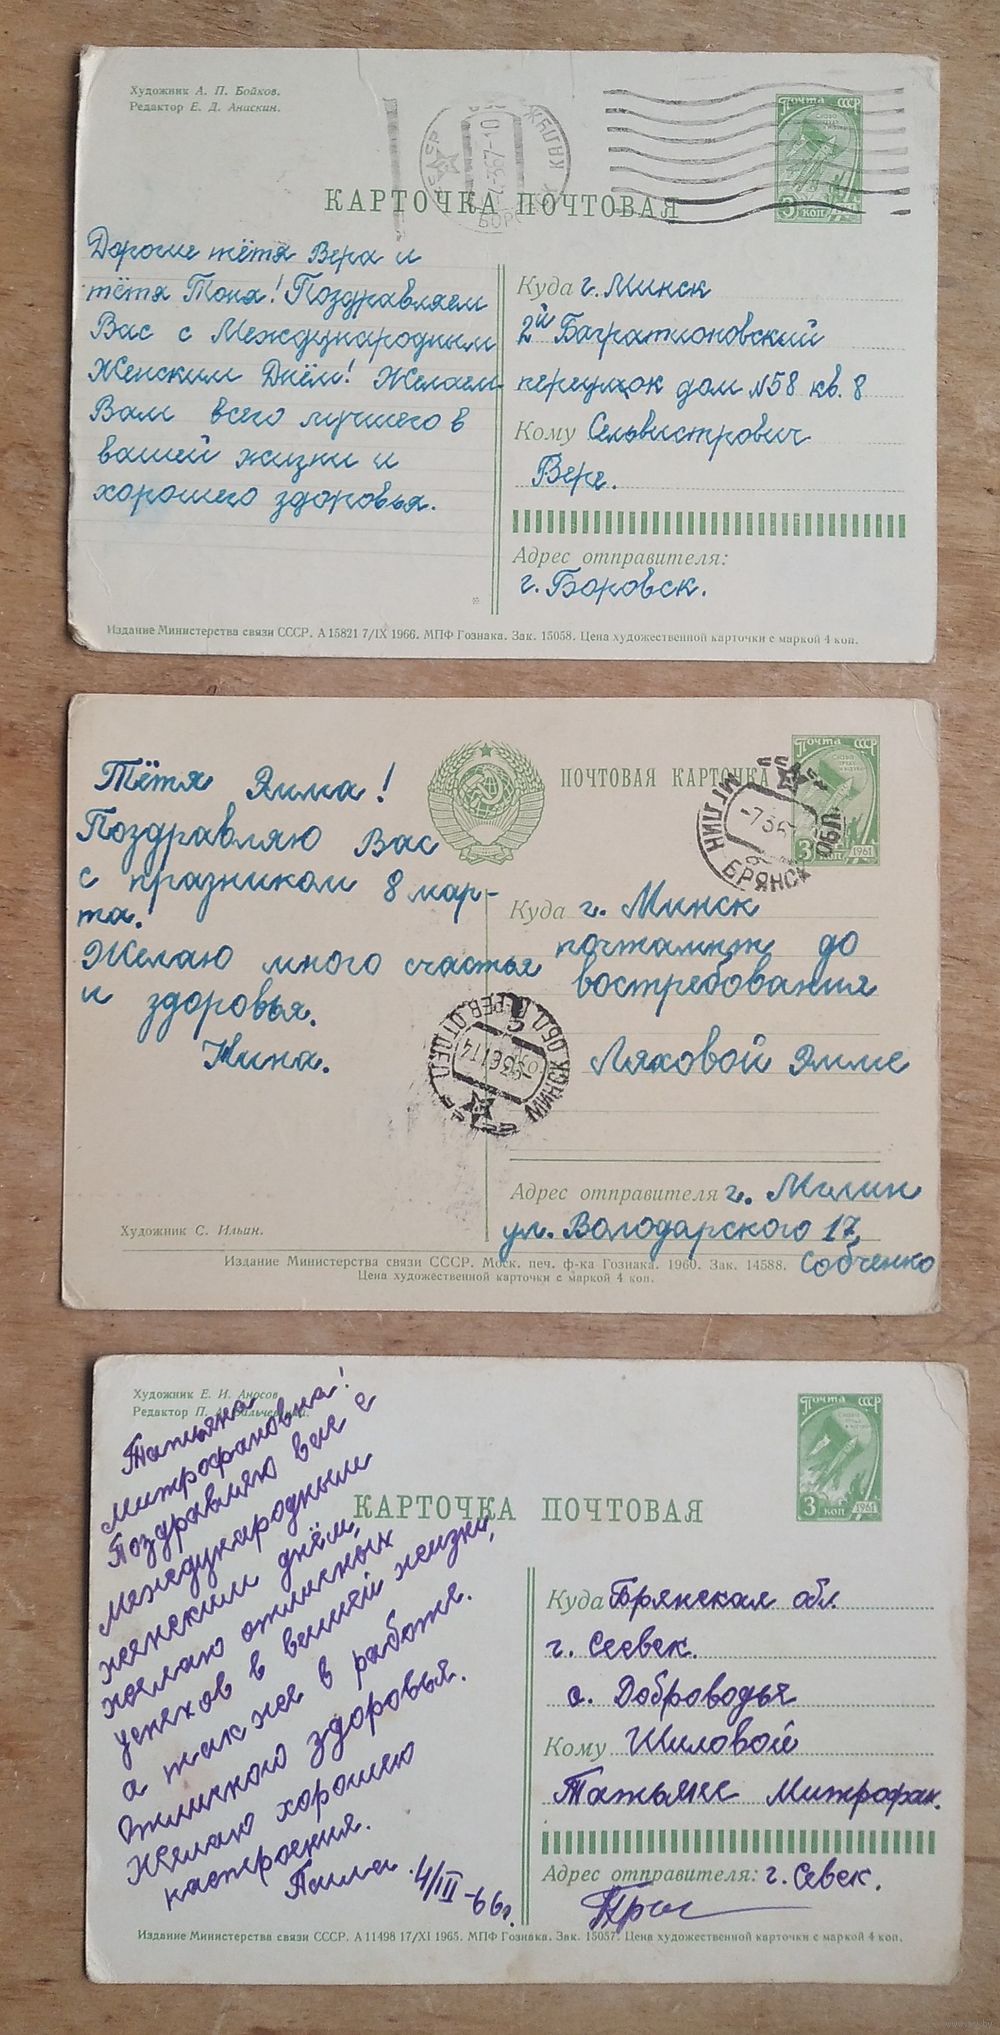 Художник А. П. Бойков.
Редактор Е. Д. Анискин.
Почта СССР
3 коп
1961
КАРТОЧКА ПОЧТОВАЯ
Дорогие тётя Вера и
тётя Тоня! Поздравляем
Вас с Международным
Женским Днём! Желаем
Вам всего лучшего в
вашей жизни и
хорошего здоровья.
Куда г. Минск
2й Багратионовский
переулок дом №58 кв. 8
Кому Сельвистрович
Вере.
Адрес отправителя:
г. Боровск.
Издание Министерства связи СССР. А 15821 7/IX 1966. МПФ Гознака. Зак. 15058. Цена художественной карточки с маркой 4 коп.
ПОЧТОВАЯ КАРТОЧКА
Почта СССР
3 коп
1961
МГЛИН БРЯНСК ОБЛ.
Тётя Римма!
Поздравляю Вас
с празником 8 мар-
та.
Желаю много счастья
и здоровья.
Нина.
Куда г. Минск
почтампт до
востребования
Ляховой Римме
МИНСК ОБЛ
Адрес отправителя г. Мглин
ул. Володарского 17,
Собченко
Художник С. Ильин.
Издание Министерства связи СССР. Моск. печ. ф-ка Гознака. 1960. Зак. 14588.
Цена художественной карточки с маркой 4 коп.
Художник Е. И. Аносов
Редактор П.
Почта СССР
3 коп
1961
КАРТОЧКА ПОЧТОВАЯ
Татьяна
Митрофановна!
Поздравляю вас с
международным
женским днём,
желаю отличных
успехов в вашей жизни,
а так же в работе.
Отличного здоровья.
Желаю хорошего
настроения.
4/III-66г.
Куда Брянская обл
г. Сеевск.
с. Доброводье
Кому Шиловой
Татьяне Митрофан.
Адрес отправителя: г. Севск.
Издание Министерства связи СССР. А 11498 17/XI 1965. МПФ Гознака. Зак. 15057. Цена художественной карточки с маркой 4 коп.